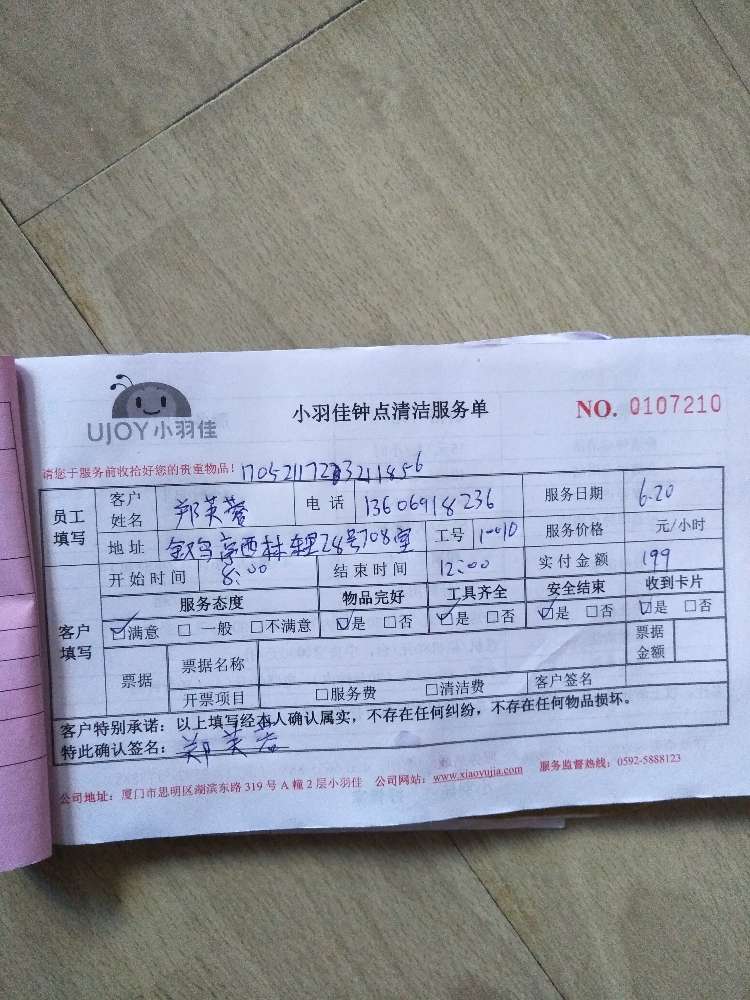 UJOY小羽佳
小羽佳钟点清洁服务单
NO. 0107210
请您于服务前收拾好您的贵重物品!
员工填写 客户姓名 郑芙蓉 电话 13606918236 服务日期 6.20
地址 西林东里28号708室 工号 服务价格 元/小时
开始时间 8:00 结束时间 12:00 实付金额 199
客户填写 服务态度 物品完好 工具齐全 安全结束 收到卡片
☑满意 □一般 □不满意 ☑是 □否 ☑是 □否 ☑是 □否 ☑是 □否
票据 票据名称 票据金额
开票项目 □服务费 □清洁费 客户签名
客户特别承诺：以上填写经本人确认属实，不存在任何纠纷，不存在任何物品损坏。
特此确认签名：郑芙蓉
公司地址：厦门市思明区湖滨东路319号A幢2层小羽佳 公司网站：www.xiaoyujia.com 服务监督热线：0592-5888123